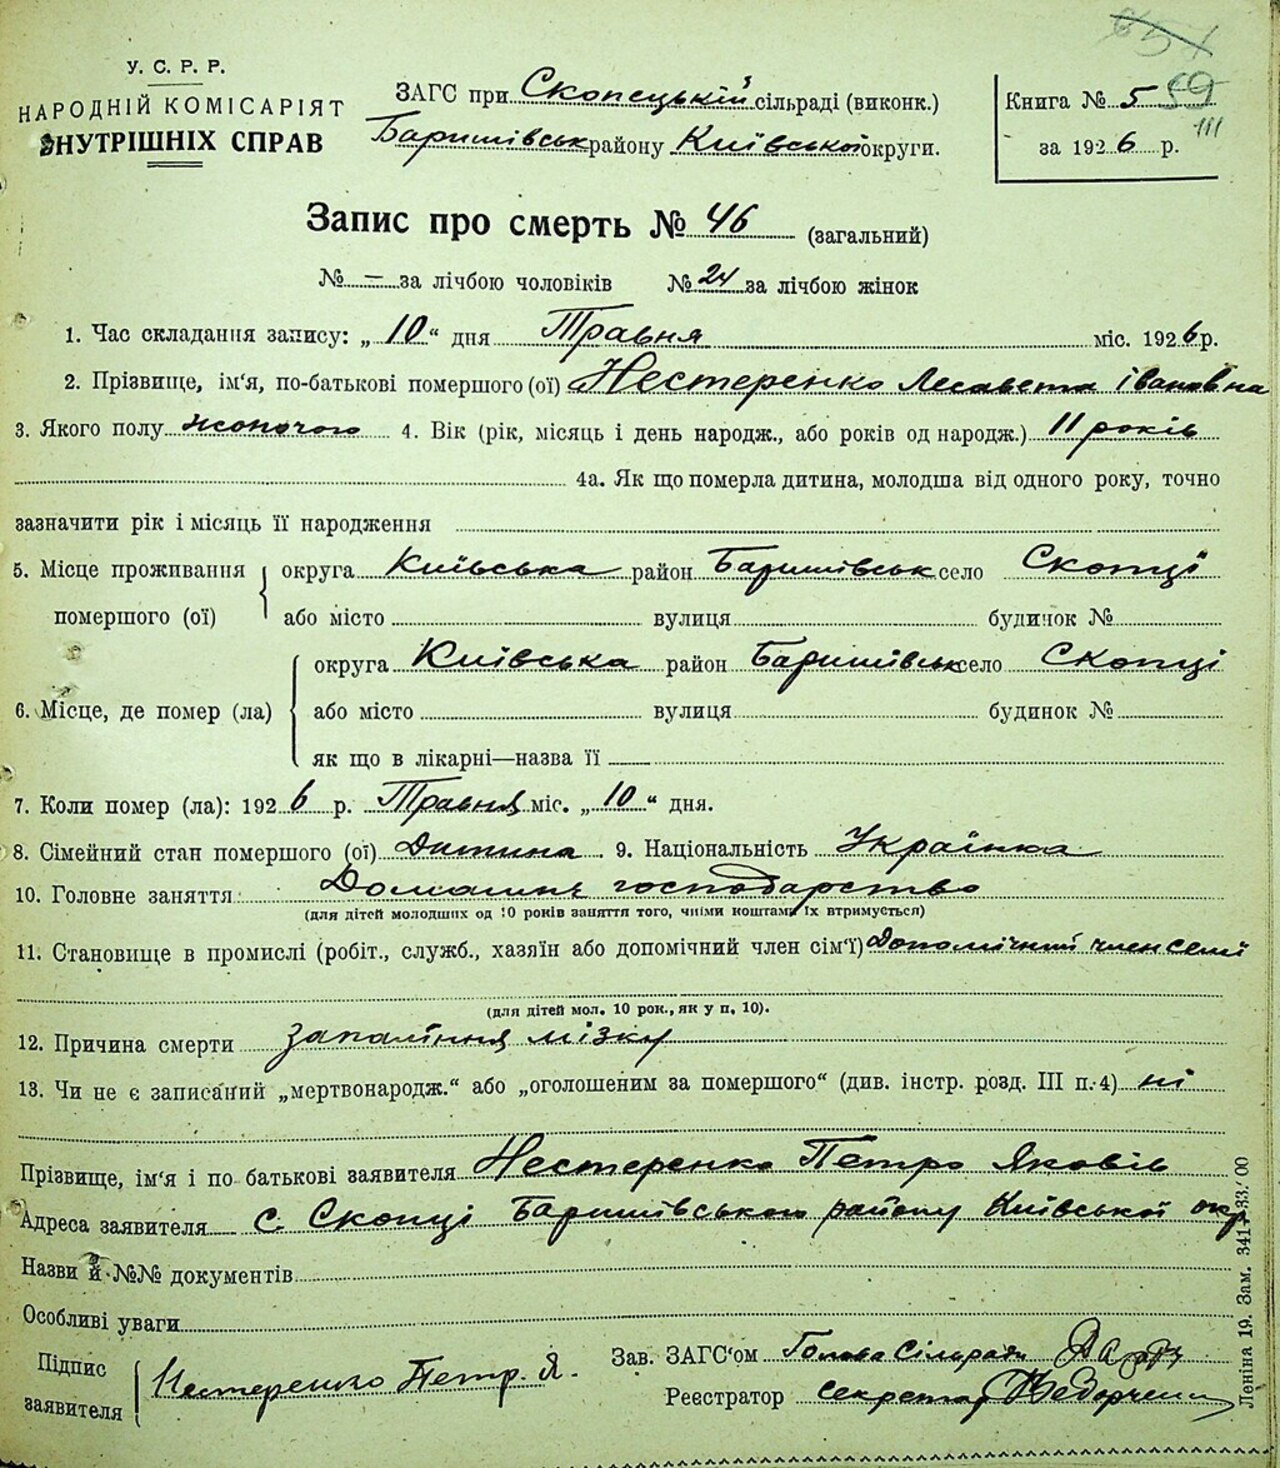 У. С. Р. Р.
НАРОДНІЙ КОМІСАРІЯТ
ВНУТРІШНІХ СПРАВ
ЗАГС при Скопецькій сільраді (виконк.)
Баришівськ району Київської округи.
Книга № 5 59
III
за 1926 р.
Запис про смерть № 46 (загальний)
№ – за лічбою чоловіків № 24 за лічбою жінок
1. Час складання запису: „10“ дня Травня міс. 1926 р.
2. Прізвище, ім'я, по-батькові помершого (ої) Нестеренко Лесавета Івановна
3. Якого полу жоночого 4. Вік (рік, місяць і день народж., або років од народж.) 11 років
4а. Як що померла дитина, молодша від одного року, точно
зазначити рік і місяць її народження
5. Місце проживання округа Київська район Баришівськ село Скопці
помершого (ої) або місто вулиця будинок №
округа Київська район Баришівськ село Скопці
6. Місце, де помер (ла) або місто вулиця будинок №
як що в лікарні—назва її
7. Коли помер (ла): 1926 р. Травня міс. „10“ дня.
8. Сімейний стан помершого (ої) Дитина . 9. Національність Українка
10. Головне заняття Домашнє господарство
(для дітей молодших од 10 років заняття того, чиїми коштами їх втримується)
11. Становище в промислі (робіт., служб., хазяїн або допомічний член сім'ї) Допомічний член семї
(для дітей мол. 10 рок., як у п. 10).
12. Причина смерти запаління мізку
13. Чи не є записаний „мертвонародж.“ або „оголошеним за помершого“ (див. інстр. розд. III п. 4) ні
Прізвище, ім'я і по батькові заявителя Нестеренко Петро Яковів
Адреса заявителя с. Скопці Баришівського району Київської окр
Назви й №№ документів
Особливі уваги
Підпис
заявителя Нестеренко Петр. Я.
Зав. ЗАГС'ом Голова Сільради
Реєстратор секретар
Леніна 19. Зам. 341